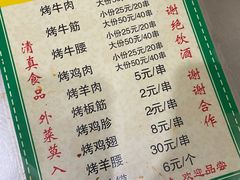 烤牛肉 大份50元/40串
小份25元/20串
烤牛筋 大份50元/40串
小份25元/20串
烤牛腰 大份50元/40串
小份25元/20串
烤鸡肉 大份50元/40串
烤羊肉 5元/串
烤板筋 2元/串
烤鸡胗 2元/串
烤鸡翅 8元/串
烤羊腰 30元/串
6元/个
清真食品
外菜莫入
谢绝饮酒
谢谢合作
欢迎品尝